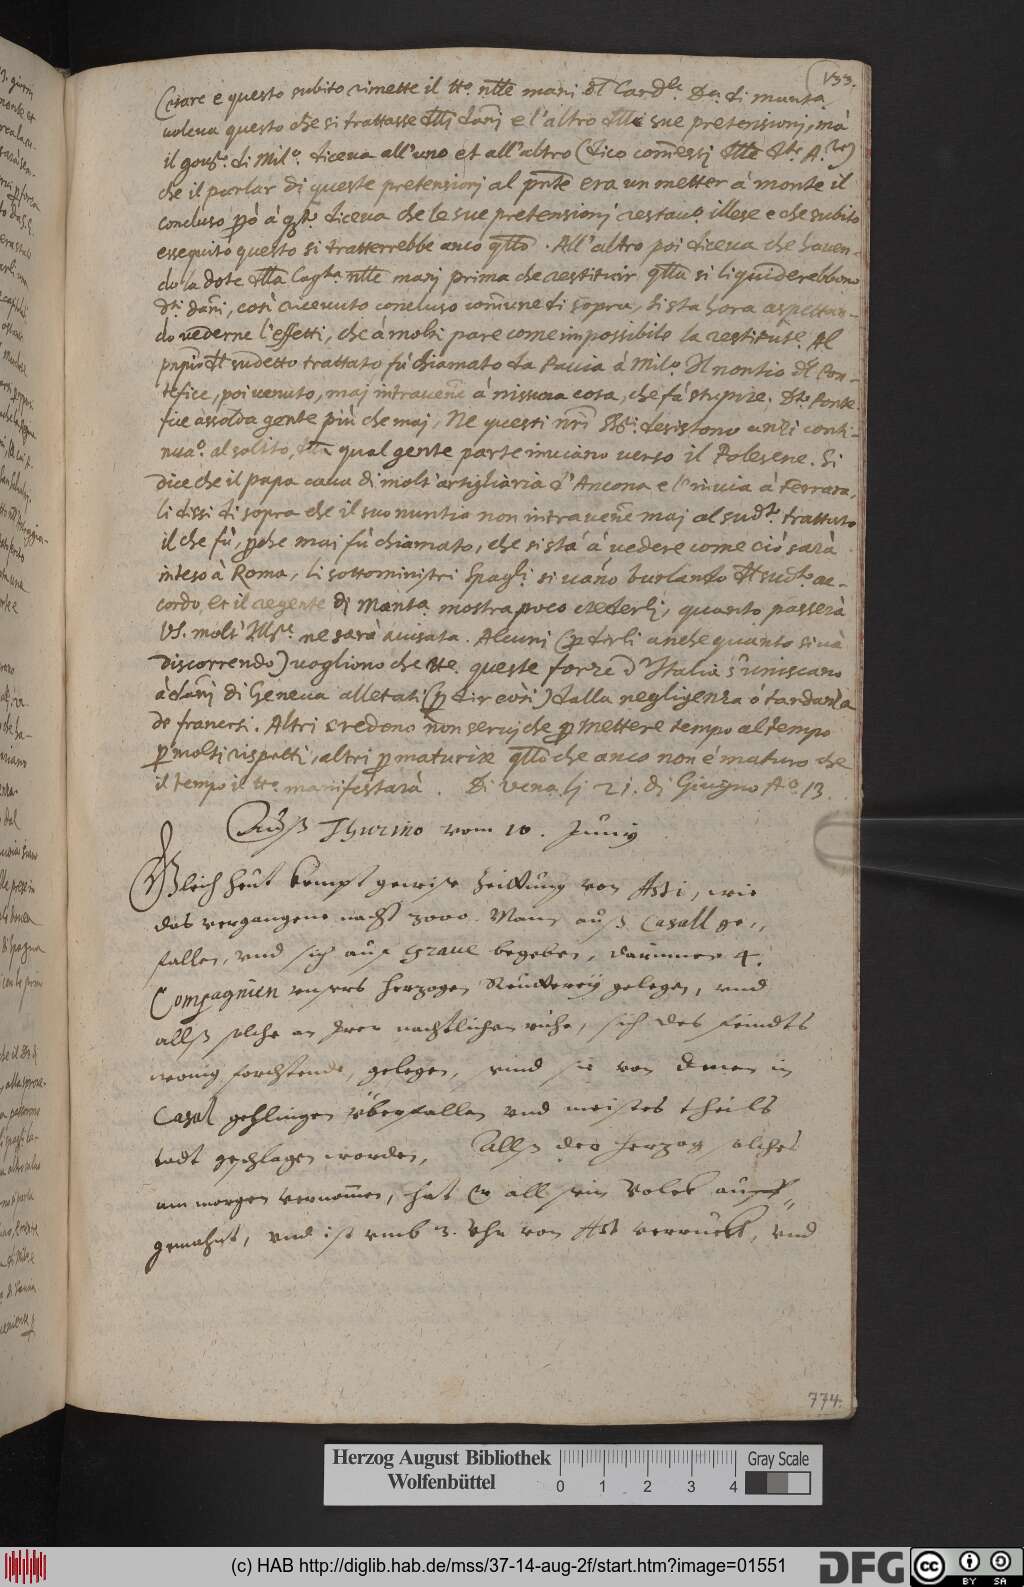 133.
Cesare e questo subito rimette il tto. nlle mani dl Card.le Da. di mantoa
voleva questo che si trattasse dlli danj e l'altro dlle sue pretensionj, mà
il gov.re di Mil.o diceva all'uno et all'altro (dico com̃essi dlle dte. A.ze)
che il parlar di queste pretensionj al pnte era un metter à monte il
concluso però à qsto. diceva che le sue pretensionj restavo. illese e che subito
esseguito questo si trattarrebbe anco qllo. All'altro poi diceva che haven-
do la dote dlla nlle manj prima che restituir qlla si liquiderebbono
dti. danj, così ricevuto concluso com̃une di sopra, si sta hora aspettan-
do vederne l'effetti, che à molti pare come impossibile la restituti. Al
pnpio dl sudetto trattato fù chiamato da Pavia à Mil.o Il nontio dl Pon-
tefice, poi venuto, maj intravene à nissuna cosa, che fà stupire. Dto. Ponte
fice assolda gente più che maj, Ne questi nri SSri. desistono anzi conti-
nuao. al solito, dlla qual gente parte inviano verso il Polesene. Si
dice che il papa cava di molt'artigliaria d'Ancona e l'invia à Ferrara,
li dissi di sopra che il suo nuntio non intravene maj al sudto. trattato
il che fù, pche mai fù chiamato, che si stà à vedere come ciò sarà
inteso à Roma, li sottoministri Spagli. si vano burlando dl sudto. ac-
cordo, et il regente di Manta. mostra poco crederli, quanto passerà
VS. molt'Illre. ne sarà avisata. Alcuni (p dirli anche quanto si và
discorrendo) vogliono che tte. queste forze d'Italia s'uniscano
à danj di Geneva alletati (p dir così) dalla negligenza ó tardanza
de francesi. Altri credono non servj che p mettere tempo al tempo
p molti rispetti, altri p maturire qllo che anco non é maturo che
il tempo il tto. manifestarà. Di Vena. lj 21. dj Giugno Ao. 13
Auß Thurino vom 10. Junij
Gleich heut kompt gewise Zeittung von Asti, wie
das vergangene nacht 3000. Mann auß Casall ge-
fallen, vnd sich auf Grane begeben, darinnen 4.
Compagnien vnsers herzogen Reutterey gelegen, vnd
allß solche an Irer nachtlichen ruhe, sich des feindts
wenig forchtende, gelegen, sind sie von denen in
Casal gehlingen überfallen vnd meistes theils
todt geschlagen worden, Allß der herzog solches
am morgen vernommen, hat Er all sein Volck auff-
gemahnt, vnd ist vmb 3. Vhr von Ast verruckt, vnd
774.
Herzog August Bibliothek
Wolfenbüttel
0 1 2 3 4
Gray Scale
(c) HAB http://diglib.hab.de/mss/37-14-aug-2f/start.htm?image=01551
DFG
cc BY SA